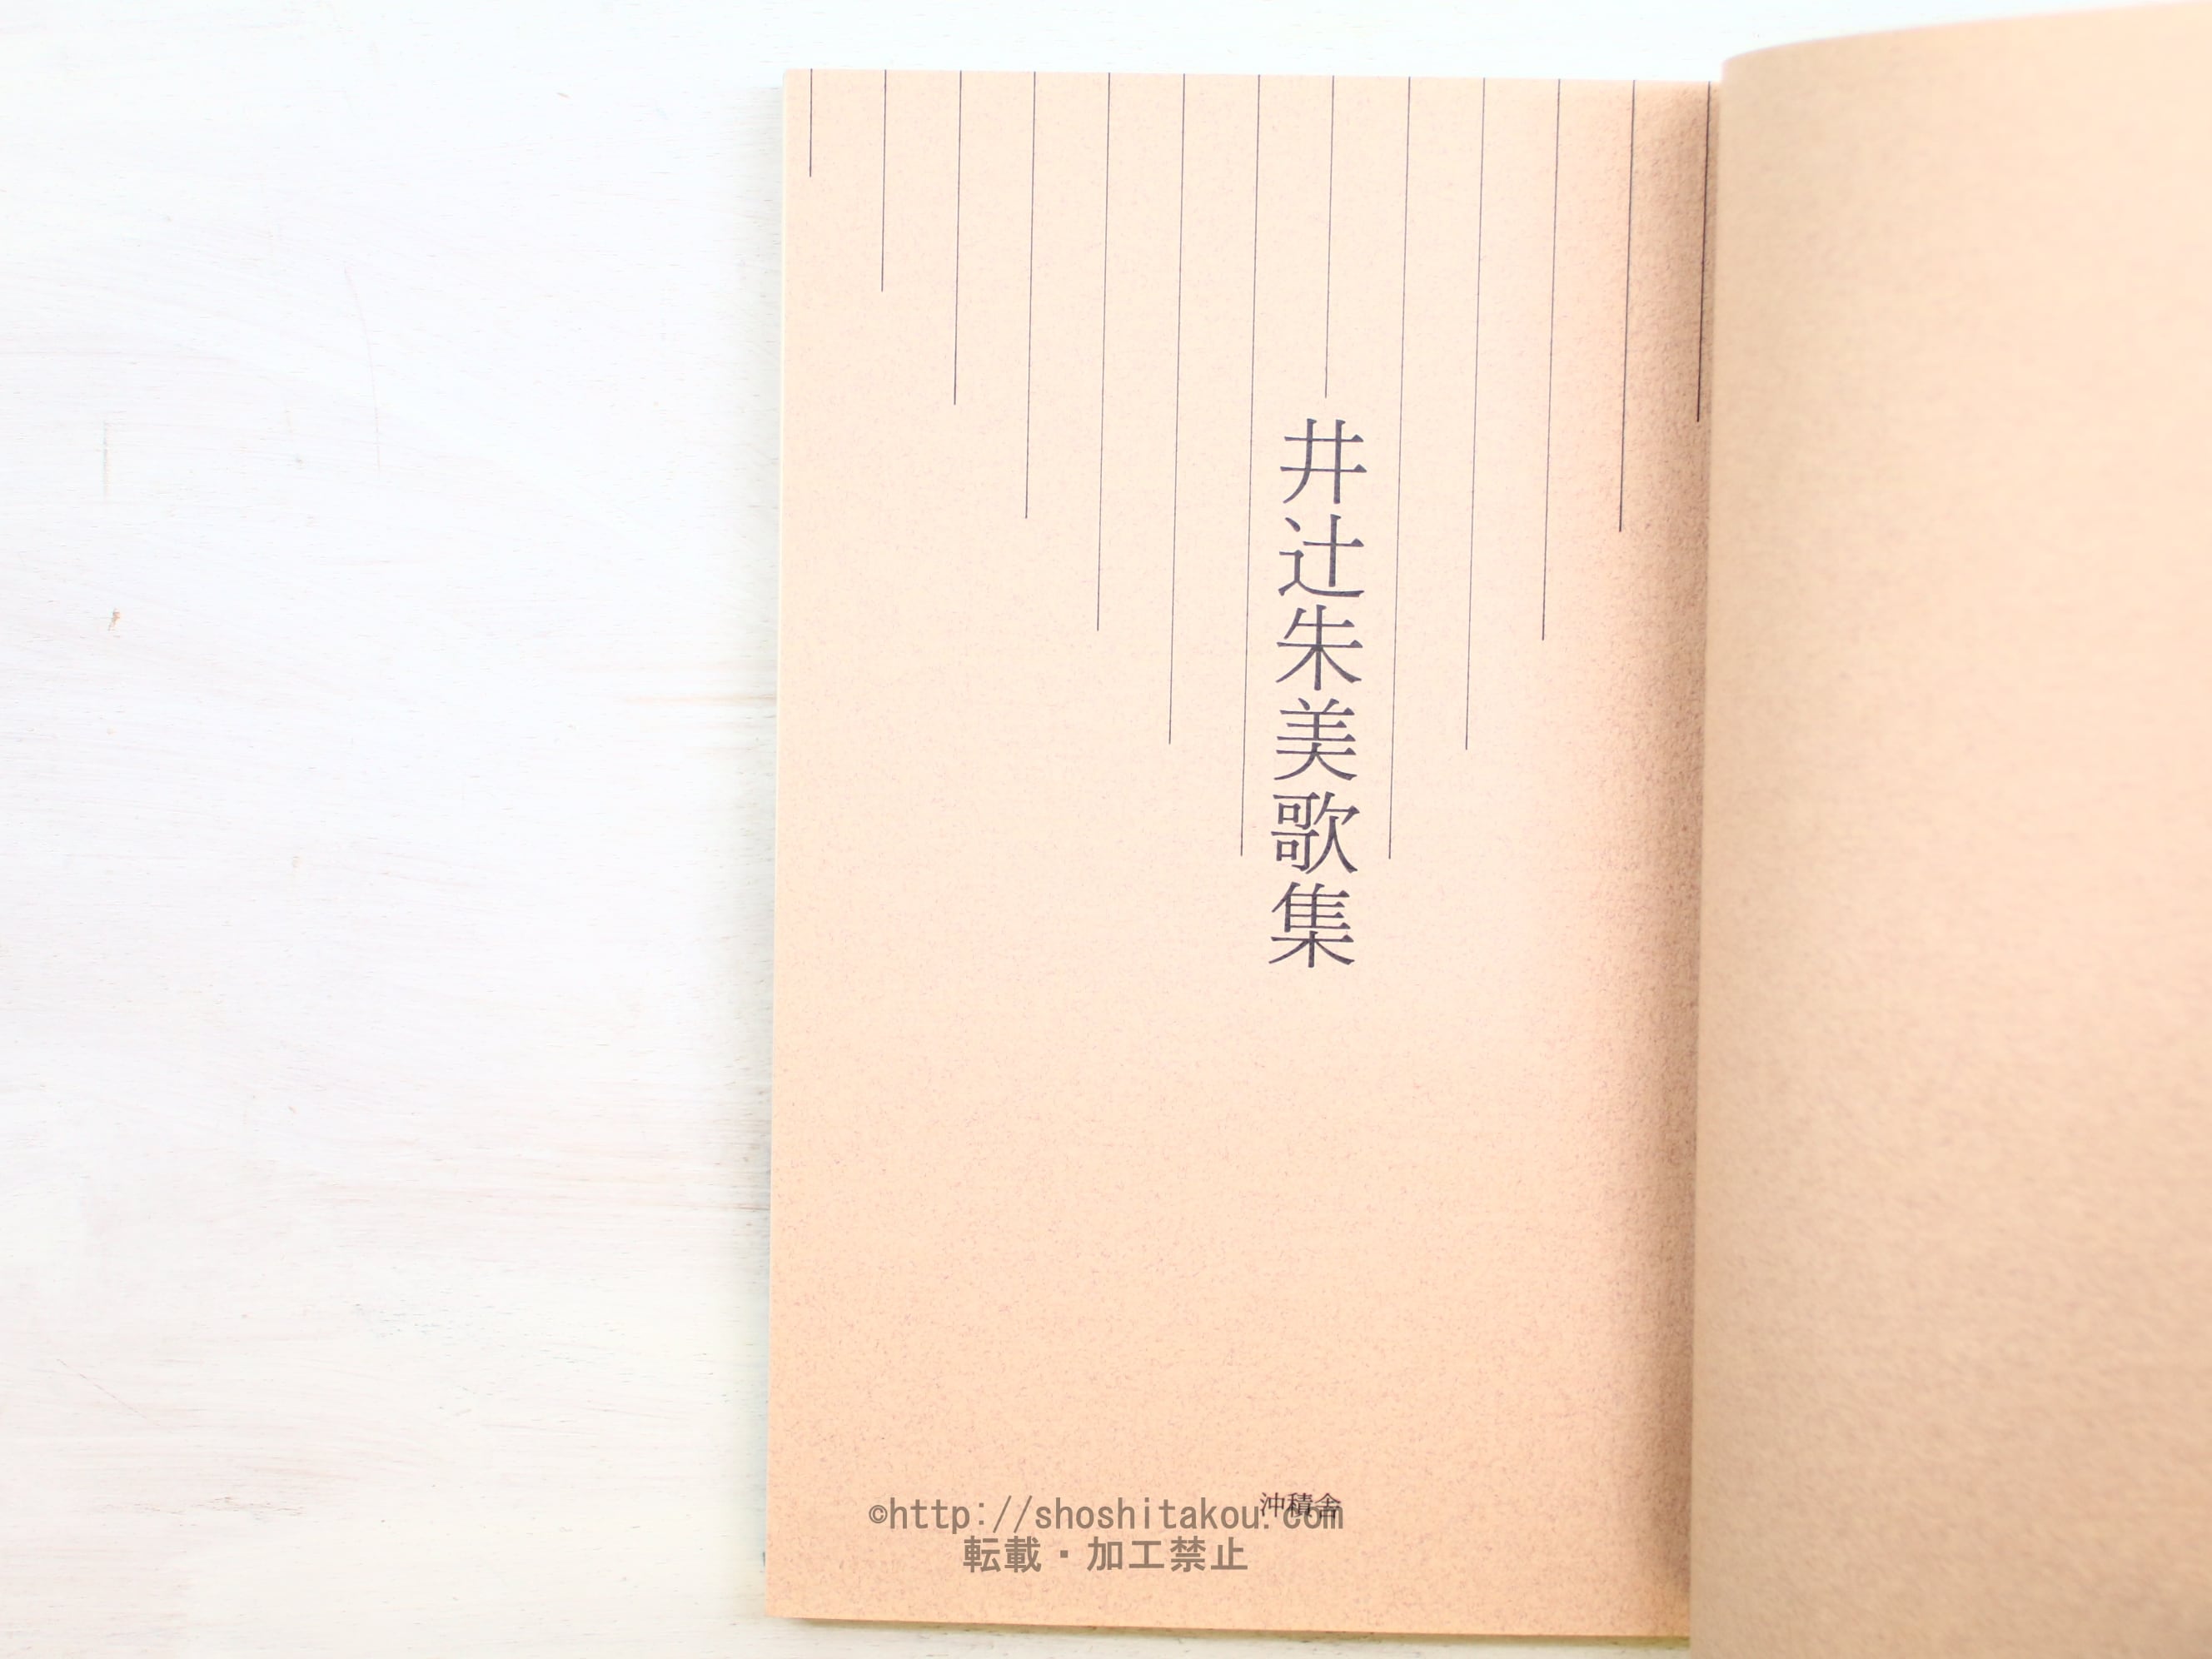 井辻朱美歌集
沖積舎
©http://shoshitakou.com
転載・加工禁止